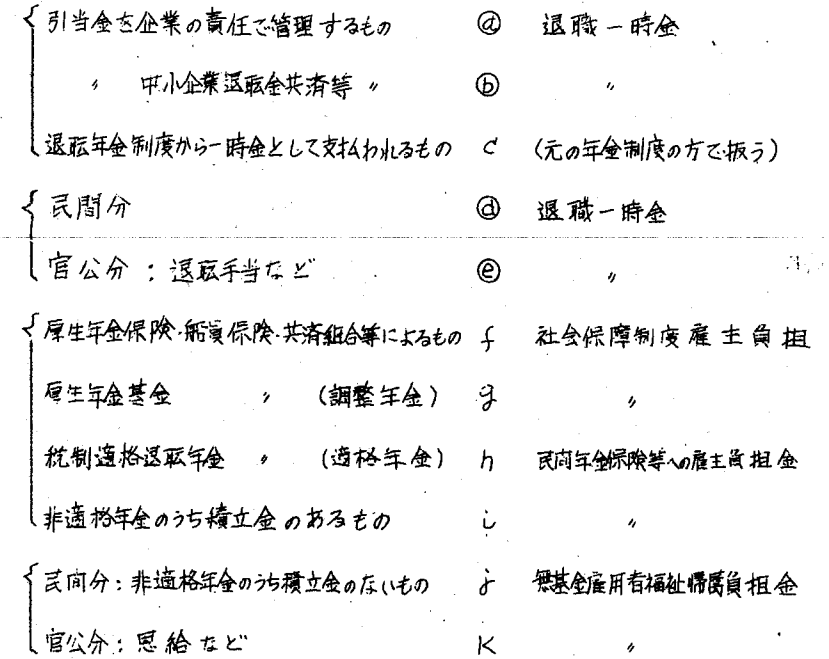 引当金を企業の責任で管理するもの ⓐ 退職一時金
〃 中小企業退転金共済等 〃 ⓑ 〃
退転年金制度から一時金として支払われるもの c (元の年金制度の方で扱う)
民間分 ⓓ 退職一時金
官公分:退転手当など ⓔ 〃
厚生年金保険・船員保険・共済組合等によるもの f 社会保障制度雇主負担
厚生年金基金 〃 (調整年金) g 〃
税制適格退転年金 〃 (適格年金) h 民间年金保険等への雇主負担金
非適格年金のうち積立金のあるもの i 〃
民间分:非適格年金のうち積立金のないもの j 無基金雇用者福祉帰属負担金
官公分:恩給など K 〃